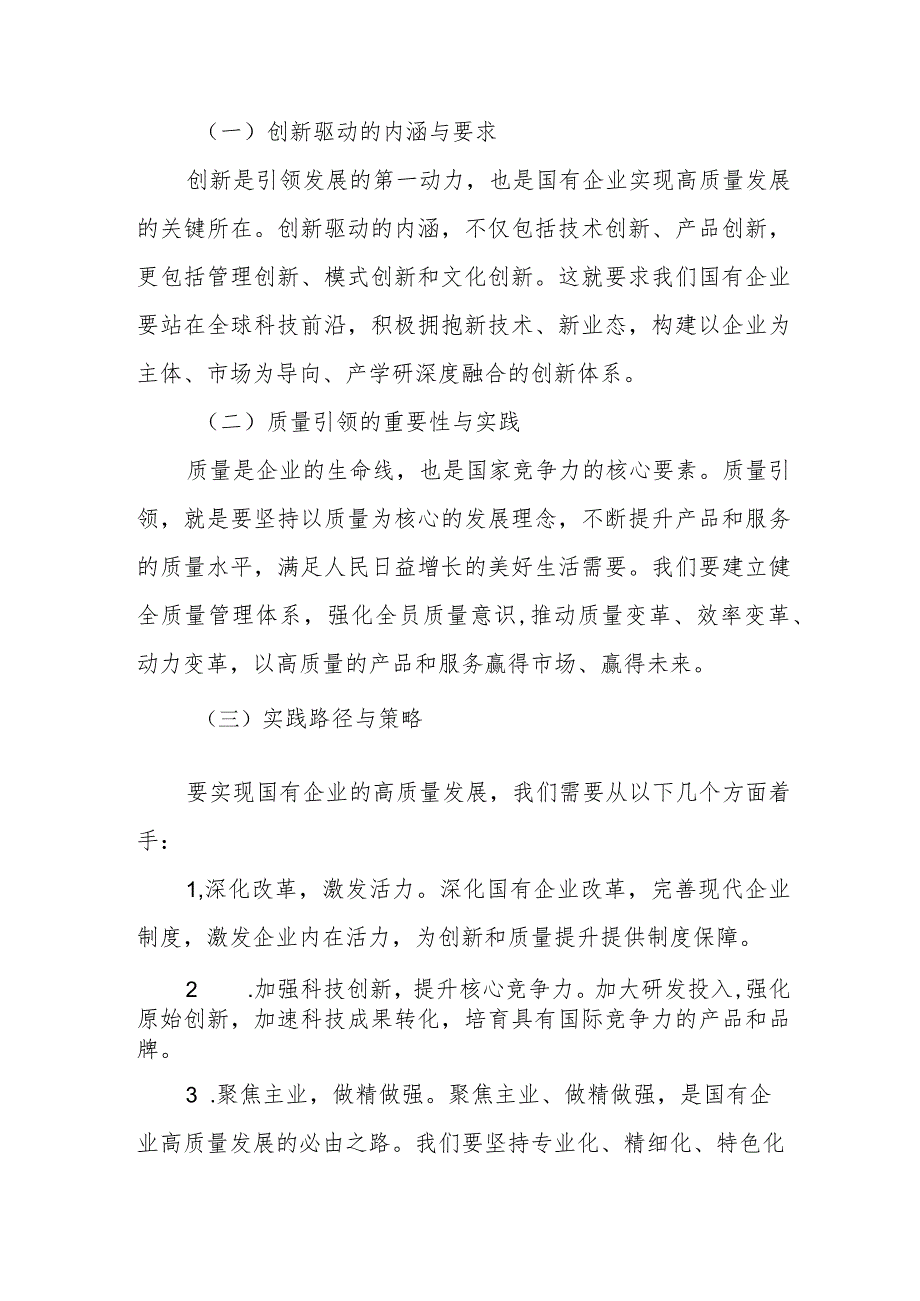 （一）创新驱动的内涵与要求
创新是引领发展的第一动力，也是国有企业实现高质量发展
的关键所在。创新驱动的内涵，不仅包括技术创新、产品创新，
更包括管理创新、模式创新和文化创新。这就要求我们国有企业
要站在全球科技前沿，积极拥抱新技术、新业态，构建以企业为
主体、市场为导向、产学研深度融合的创新体系。
（二）质量引领的重要性与实践
质量是企业的生命线，也是国家竞争力的核心要素。质量引
领，就是要坚持以质量为核心的发展理念，不断提升产品和服务
的质量水平，满足人民日益增长的美好生活需要。我们要建立健
全质量管理体系，强化全员质量意识,推动质量变革、效率变革、
动力变革，以高质量的产品和服务赢得市场、赢得未来。
（三）实践路径与策略
要实现国有企业的高质量发展，我们需要从以下几个方面着
手：
1,深化改革，激发活力。深化国有企业改革，完善现代企业
制度，激发企业内在活力，为创新和质量提升提供制度保障。
2 .加强科技创新，提升核心竞争力。加大研发投入,强化
原始创新，加速科技成果转化，培育具有国际竞争力的产品和品
牌。
3 .聚焦主业，做精做强。聚焦主业、做精做强，是国有企
业高质量发展的必由之路。我们要坚持专业化、精细化、特色化